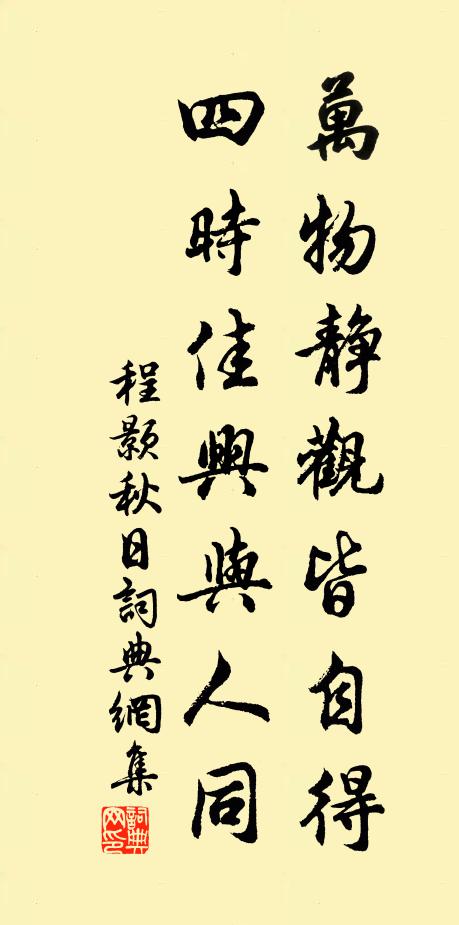 萬物静觀皆自得
四時佳興與人同
程顥秋日詞典網集
詞典網印